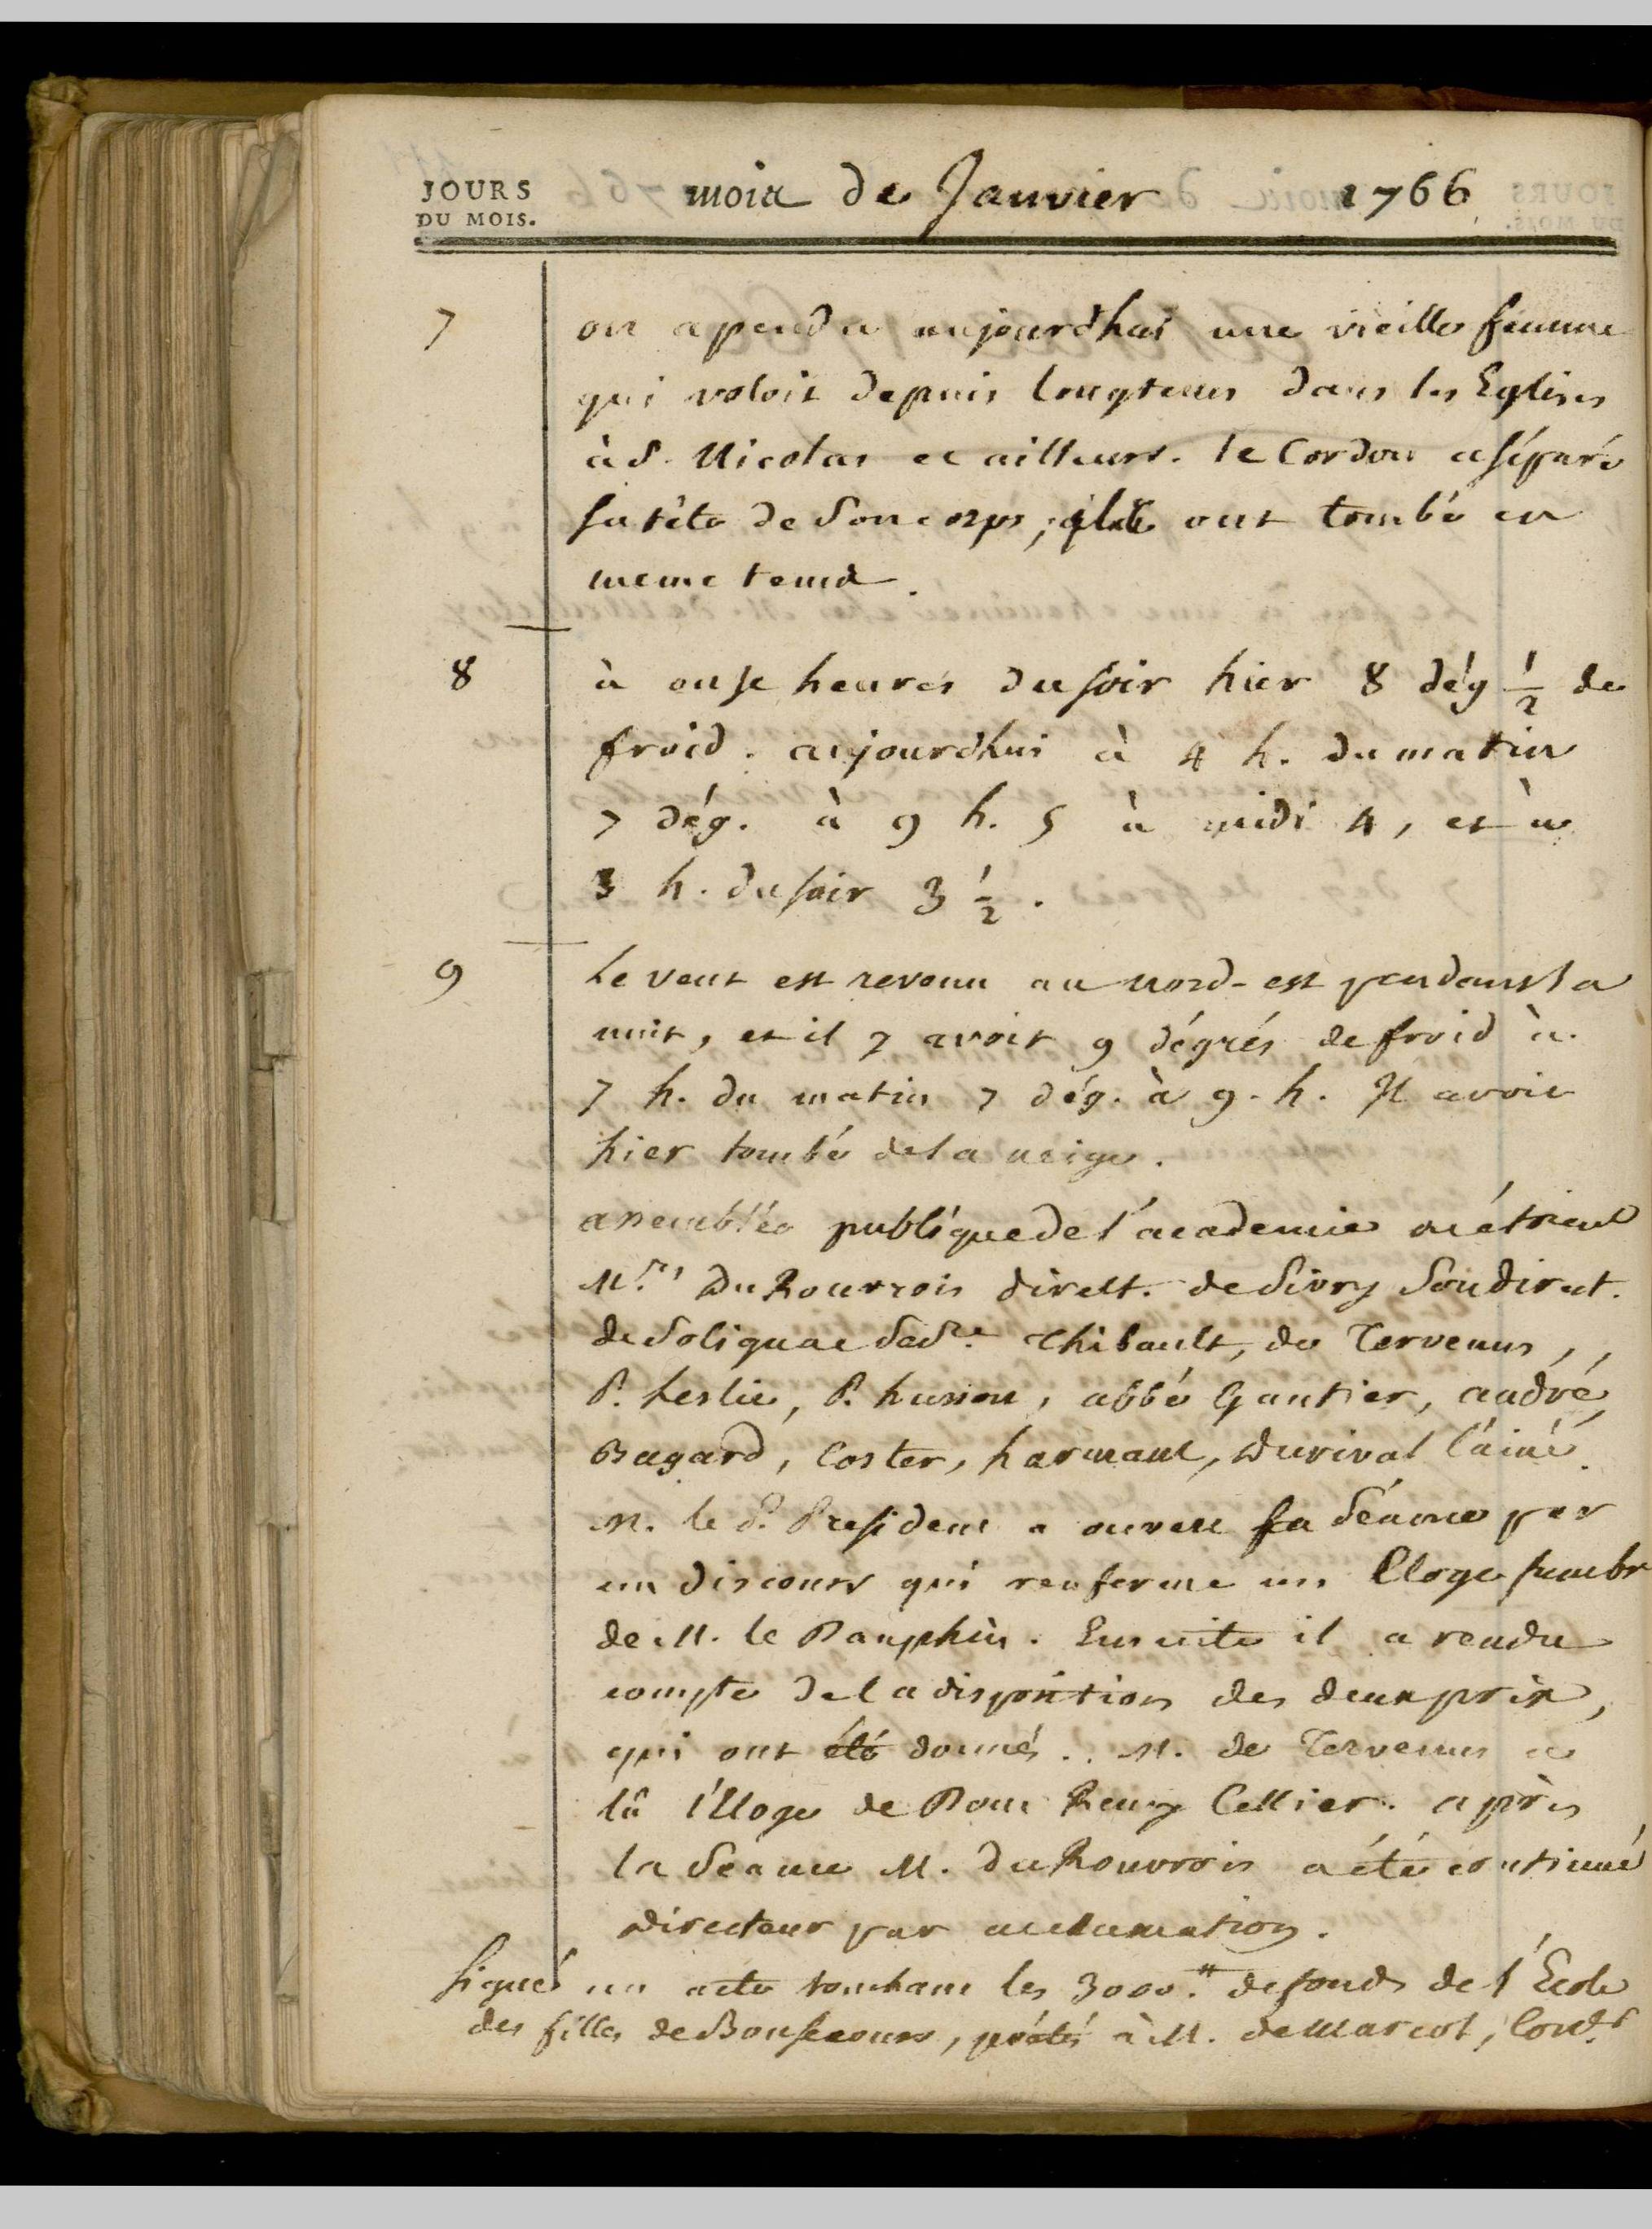 JOURS
DU MOIS.
mois de Janvier 1766
7 on a pendu aujourdhui une vieille femme
qui voloit depuis longtems dans les Eglises
à S. Nicolas et ailleurs. le Cordon a séparé
sa tête de son corps, ont tombé en
meme tems.
8 à onse heures du soir hier 8 dég 1/2 de
froid. aujourdhui à 4 h. du matin
7 dég. à 9 h. 5 à midi 4, et à
3 h. du soir 3 1/2.
9 Le vent est revenu au nord-est pendant la
nuit, et il y avoit 9 dégrés de froid à
7 h. du matin 7 dég. à 9. h. Il avoit
hier tombé de la neige.
assemblée publique de l'academie où étoient
Mrs. Du Rouvrois direct. de Sivry Soudirect.
de Solignac Secre. Thibault, de Tervenus,
P. Leslie, P. husson, abbé Gautier, andré,
Bagard, Coster, harmant, Durival l'ainé.
M. le P. President a ouvert sa Séance par
un discours qui renferme un Eloge funebr
de M. le Dauphin. Ensuite il a rendu
compte de la disposition des deux prix,
qui ont été donnés. M. de Tervenus a
lû l'Eloge de Dom Remy Cellier. après
la Séance M. du Rouvrois a été continué
directeur par acclamation.
signé un acte touchant les 3000.# de fonds de l'Ecole
des filles de Bonsecours, prétés à M. de Marcol, Cons.er